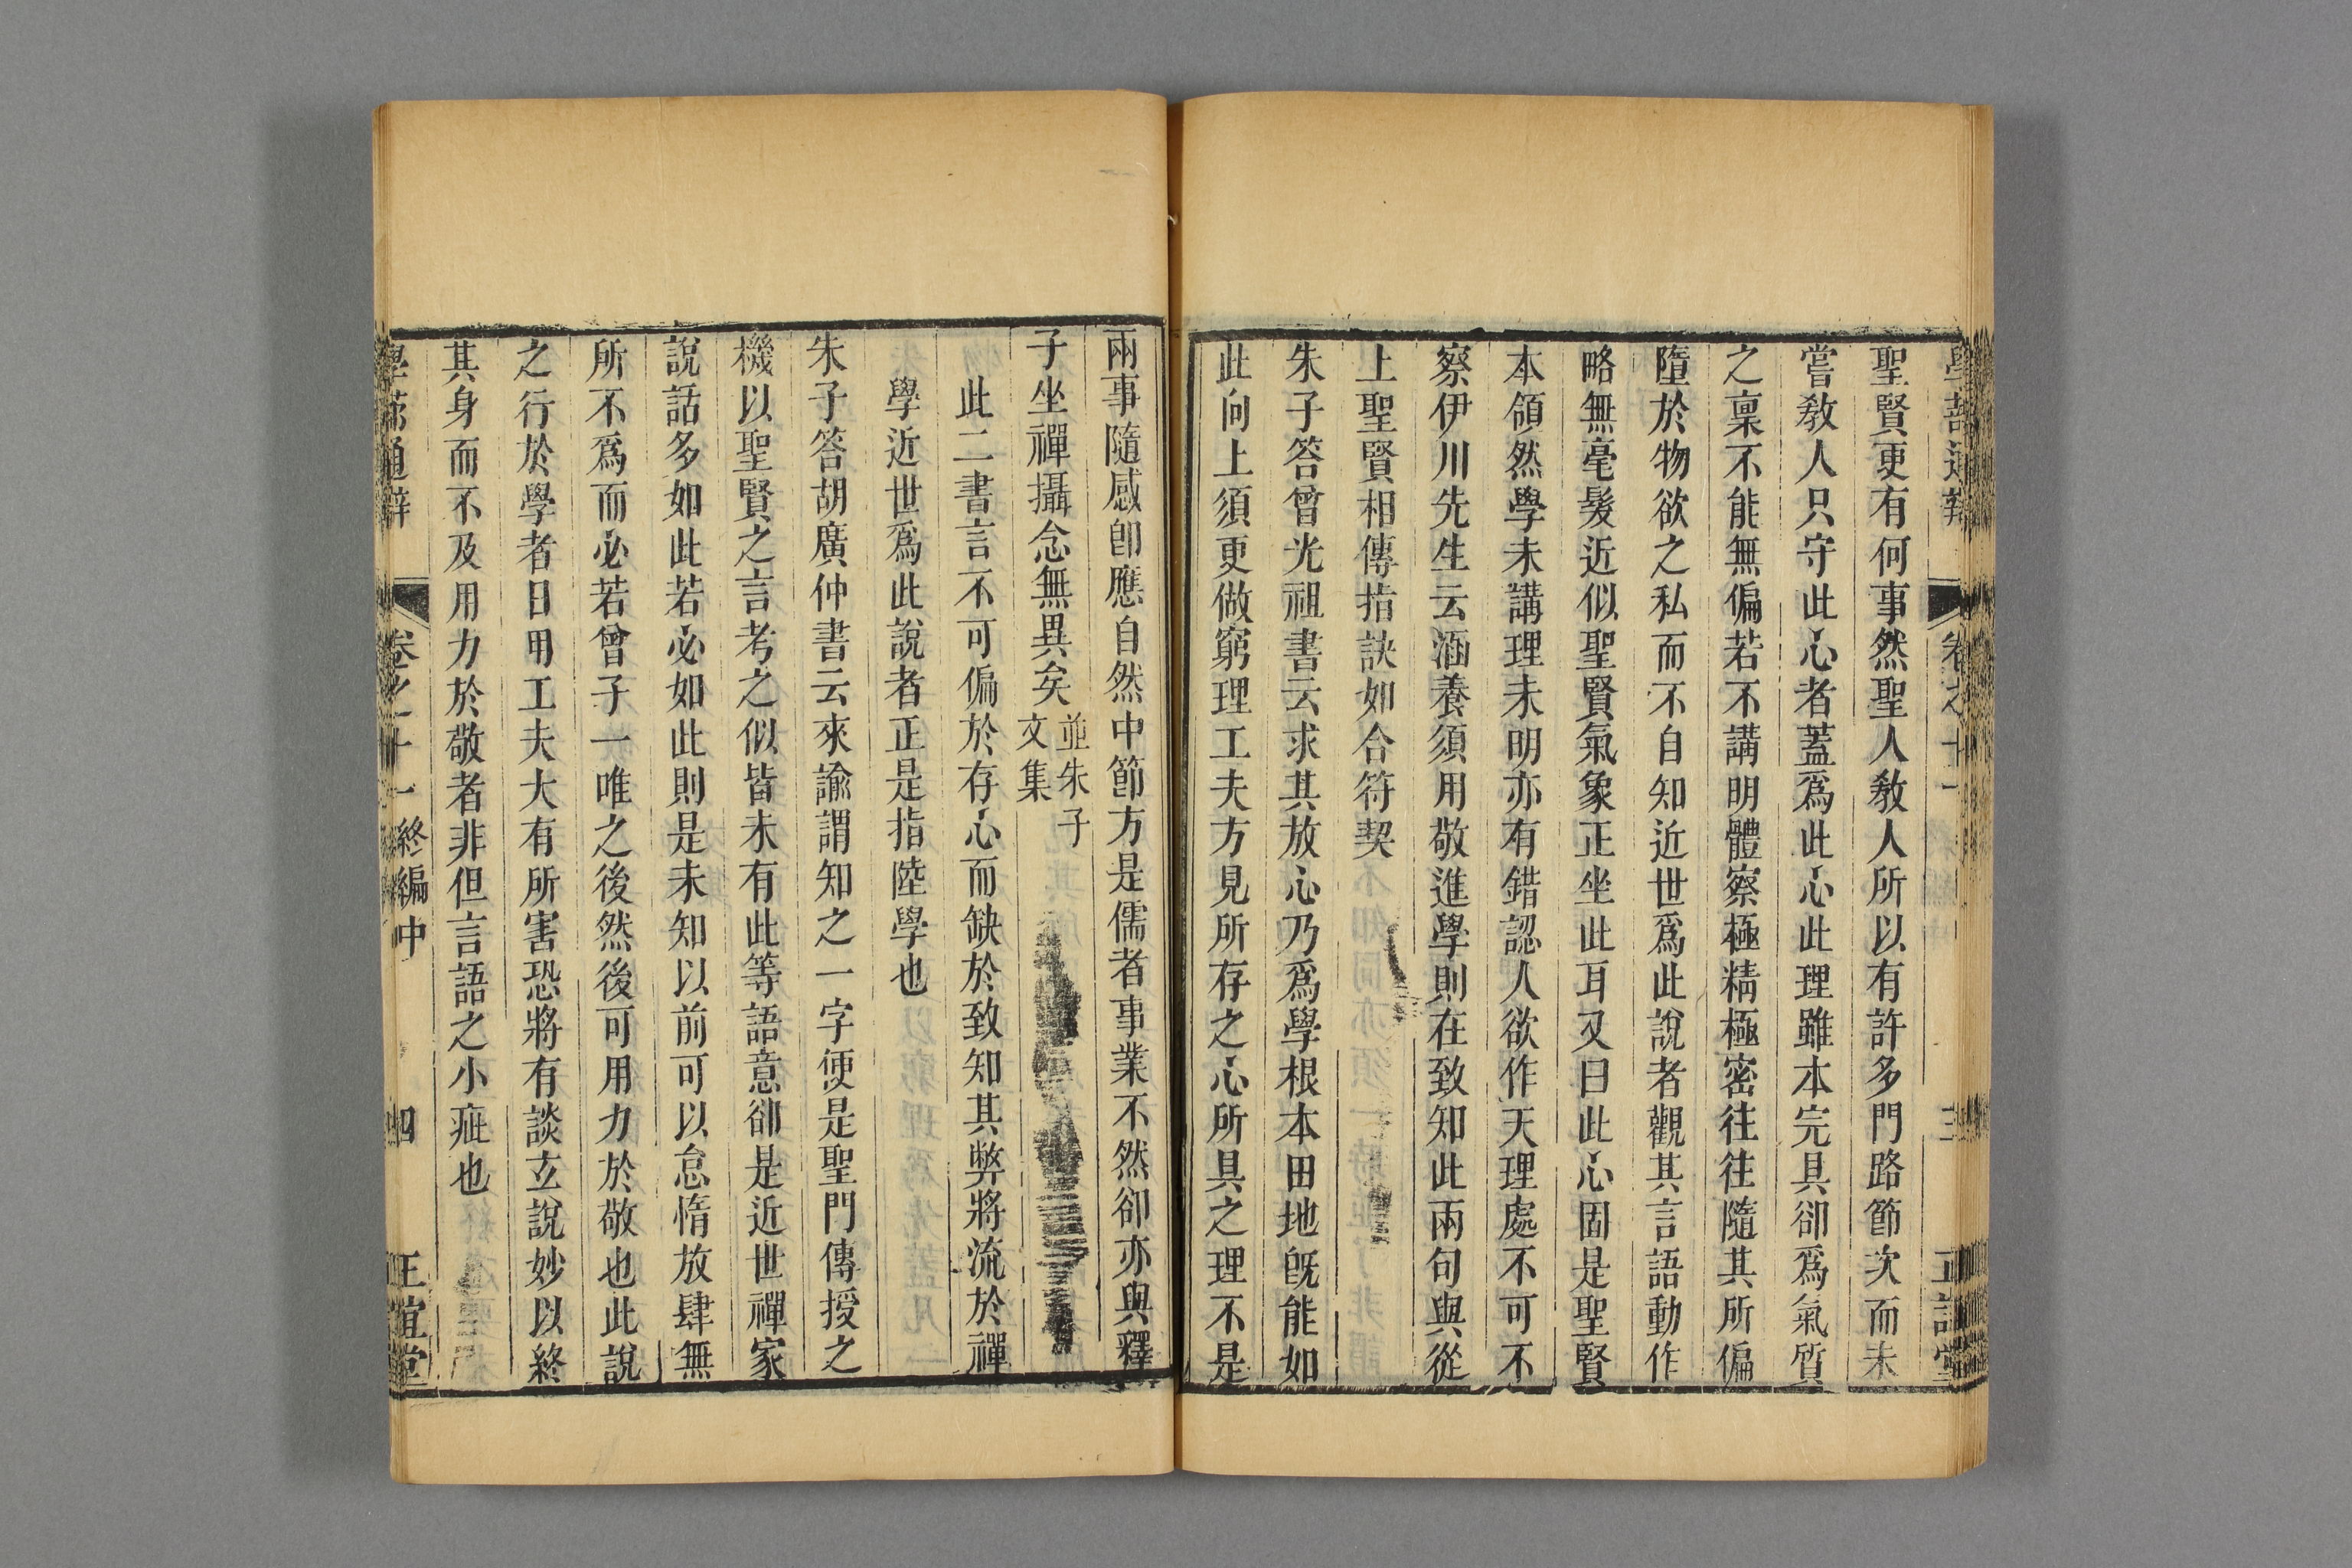 聖賢更有何事然聖人敎人所以有許多門路節次而未
嘗敎人只守此心者蓋爲此心此理雖本完具卻爲氣質
之稟不能無偏若不講明體察極精極密往往隨其所偏
墮於物欲之私而不自知近世爲此說者觀其言語動作
略無毫髮近似聖賢氣象正坐此耳又曰此心固是聖賢
本領然學未講理未明亦有錯認人欲作天理處不可不
察伊川先生云涵養須用敬進學則在致知此兩句與從
上聖賢相傳指訣如合符契
朱子答曾光祖書云求其放心乃爲學根本田地旣能如
此向上須更做窮理工夫方見所存之心所具之理不是
兩事隨感卽應自然中節方是儒者事業不然卻亦與釋
子坐禪攝念無異矣並朱子
文集
此二書言不可偏於存心而缺於致知其弊將流於禪
學近世爲此說者正是指陸學也
朱子答胡廣仲書云來諭謂知之一字便是聖門傳授之
機以聖賢之言考之似皆未有此等語意卻是近世禪家
說話多如此若必如此則是未知以前可以怠惰放肆無
所不爲而必若曾子一唯之後然後可用力於敬也此說
之行於學者日用工夫大有所害恐將有談玄說妙以終
其身而不及用力於敬者非但言語之小疵也
學蔀通辯 卷之十一終編中 四 正誼堂